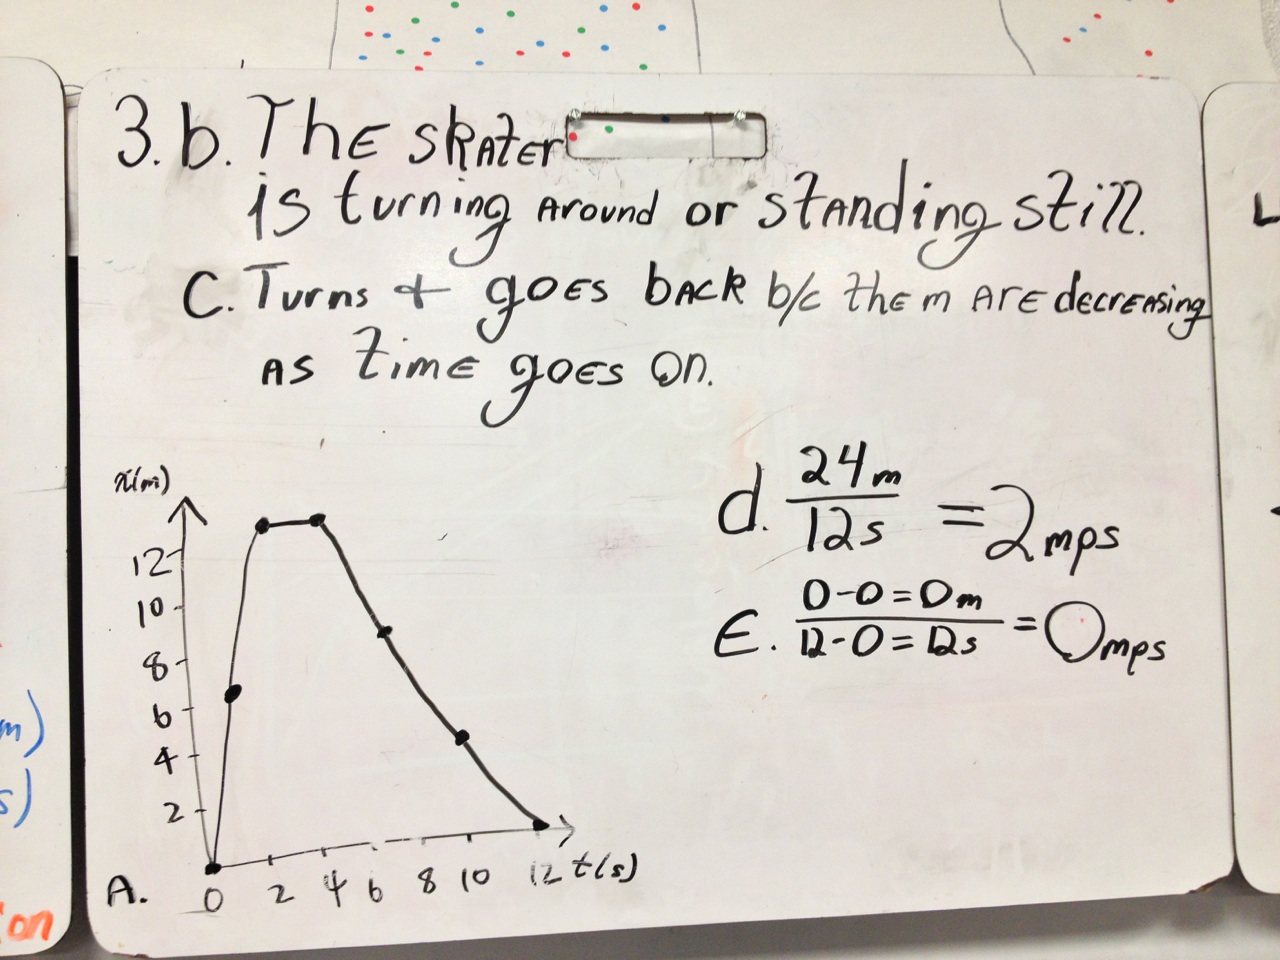 3. b. The skater
is turning around or standing still.
C. Turns + goes back b/c the m are decreasing
as time goes on.
x(m)
12
10
8
6
4
2
0 2 4 6 8 10 12 t(s)
A.
d. 24m / 12s = 2mps
E. 0-0=0m / 12-0=12s = 0mps
m)
s)
on